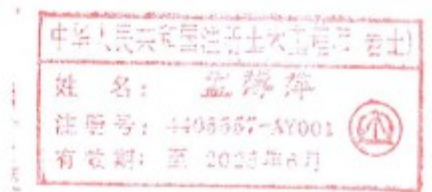 中华人民共和国注册土木工程师(岩土)
姓 名:
注册号: 4405557-AY001
有效期: 至 2023年6月